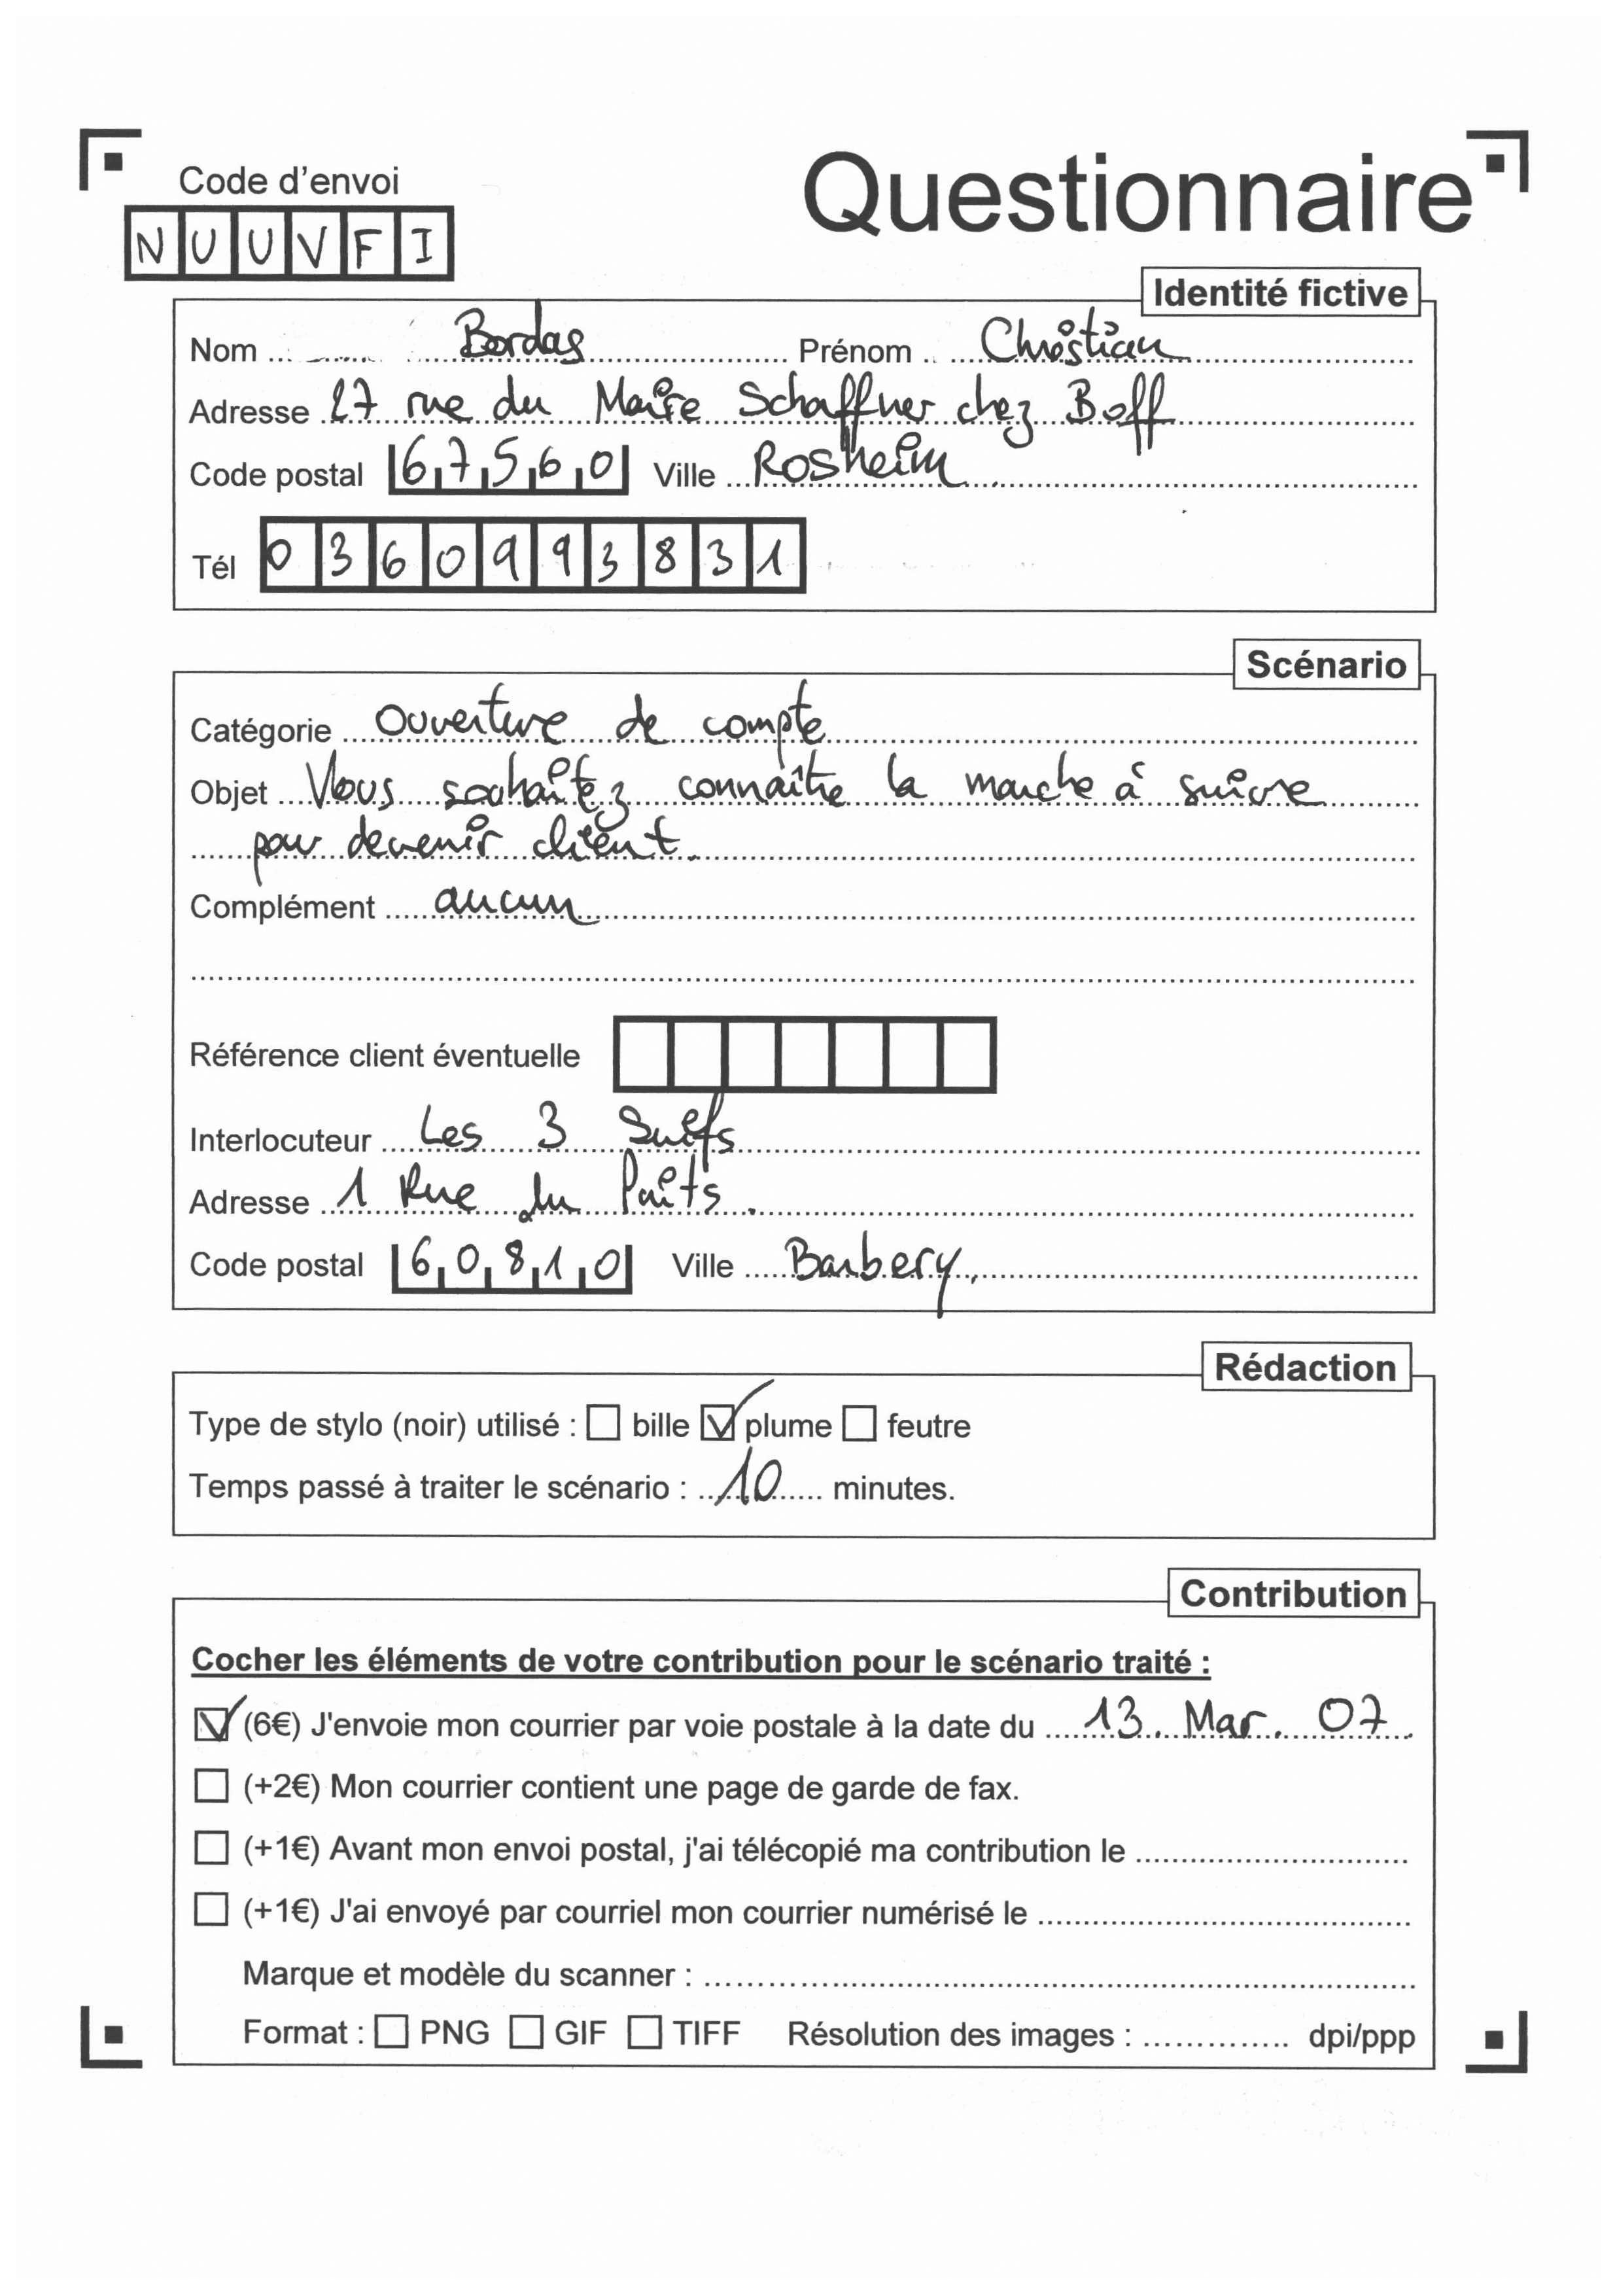 Code d'envoi
Questionnaire
NUUVFI
Identité fictive
Nom Bordas Prénom Christian
Adresse 27 rue du Maire Schaffner chez Boff
Code postal 67560 Ville Rosheim
Tél 0360993831
Scénario
Catégorie Ouverture de compte
Objet Vous souhaitez connaître la marche à suivre
pour devenir client.
Complément aucun
Référence client éventuelle
Interlocuteur Les 3 Suiefs
Adresse 1 Rue du Puits.
Code postal 60810 Ville Barbery.
Rédaction
Type de stylo (noir) utilisé : bille plume feutre
Temps passé à traiter le scénario : 10 minutes.
Contribution
Cocher les éléments de votre contribution pour le scénario traité :
(6€) J'envoie mon courrier par voie postale à la date du 13. Mar. 07
(+2€) Mon courrier contient une page de garde de fax.
(+1€) Avant mon envoi postal, j'ai télécopié ma contribution le
(+1€) J'ai envoyé par courriel mon courrier numérisé le
Marque et modèle du scanner :
Format : PNG GIF TIFF Résolution des images : dpi/ppp